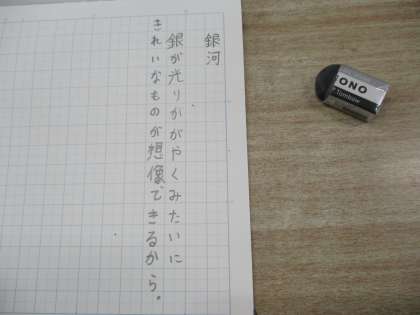 銀河
銀が光りかがやくみたいに
きれいなものが想像できるから。
ONO
Tombow